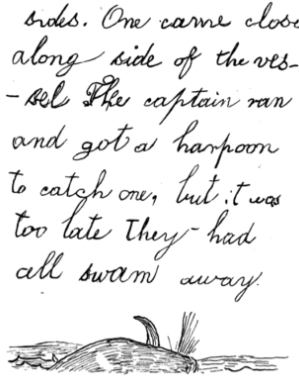 sides. One came close
along side of the ves-
-sel The captain ran
and got a harpoon
to catch one, but it was
too late They had
all swam away.